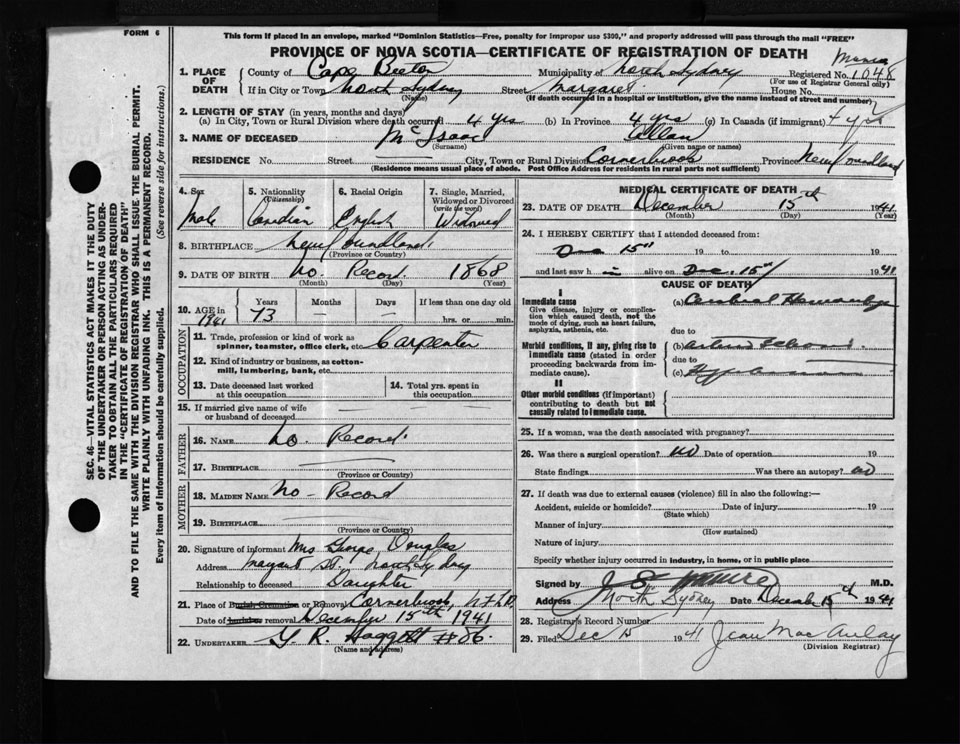 FORM 6
This form if placed in an envelope, marked "Dominion Statistics—Free, penalty for improper use $300," and properly addressed will pass through the mail "FREE"
PROVINCE OF NOVA SCOTIA—CERTIFICATE OF REGISTRATION OF DEATH
1. PLACE OF DEATH
County of Cape Breton Municipality of North Sydney Registered No. 1048
(For use of Registrar General only)
If in City or Town North Sydney Street Margaret House No.
(Name) (If death occurred in a hospital or institution, give the name instead of street and number)
2. LENGTH OF STAY (in years, months and days)
(a) In City, Town or Rural Division where death occurred 4 yrs (b) In Province 4 yrs (c) In Canada (if immigrant) 4 yrs
3. NAME OF DECEASED Mc Isaac Allan
(Surname) (Given name or names)
RESIDENCE No. Street City, Town or Rural Division Cornerbrook Province Newfoundland
(Residence means usual place of abode. Post Office Address for residents in rural parts not sufficient)
4. Sex Male
5. Nationality (Citizenship) Canadian
6. Racial Origin English
7. Single, Married, Widowed or Divorced (write the word) Widowed
8. BIRTHPLACE Newfoundland
(Province or Country)
9. DATE OF BIRTH No Record 1868
(Month) (Day) (Year)
10. AGE in 1941 Years 73 Months — Days — If less than one day old hrs. or min.
OCCUPATION
11. Trade, profession or kind of work as spinner, teamster, office clerk, etc. Carpenter
12. Kind of industry or business, as cotton-mill, lumbering, bank, etc.
13. Date deceased last worked at this occupation
14. Total yrs. spent in this occupation
15. If married give name of wife or husband of deceased
FATHER
16. NAME No. Record
17. BIRTHPLACE
(Province or Country)
MOTHER
18. MAIDEN NAME No - Record
19. BIRTHPLACE
(Province or Country)
20. Signature of informant Mrs George Douglas
Address Margaret St. North Sydney
Relationship to deceased Daughter
21. Place of Burial, Cremation or Removal Cornerbrook, NFLD
Date of burial or removal December 15th 1941
22. UNDERTAKER #86
(Name and address)
MEDICAL CERTIFICATE OF DEATH
23. DATE OF DEATH December 15th 1941
(Month) (Day) (Year)
24. I HEREBY CERTIFY that I attended deceased from:
Dec 15th 19 to 19
and last saw h alive on Dec. 15th 1941
CAUSE OF DEATH
I
Immediate cause
Give disease, injury or complication which caused death, not the mode of dying, such as heart failure, asphyxia, asthenia, etc.
(a) Cerebral Hemorrhage
due to
Morbid conditions, if any, giving rise to immediate cause (stated in order proceeding backwards from immediate cause).
(b)
due to
(c)
II
Other morbid conditions (if important) contributing to death but not causally related to immediate cause.
25. If a woman, was the death associated with pregnancy?
26. Was there a surgical operation? no Date of operation 19
State findings Was there an autopsy? no
27. If death was due to external causes (violence) fill in also the following:—
Accident, suicide or homicide? Date of injury 19
(State which)
Manner of injury
(How sustained)
Nature of injury
Specify whether injury occurred in industry, in home, or in public place
Signed by M.D.
Address North Sydney Date December 15th 1941
28. Registrar's Record Number
29. Filed Dec 15 1941 Jean MacAulay
(Division Registrar)
SEC. 46—VITAL STATISTICS ACT MAKES IT THE DUTY
OF THE UNDERTAKER OR PERSON ACTING AS UNDER-
TAKER TO OBTAIN ALL THE PARTICULARS REQUIRED
IN THE "CERTIFICATE OF REGISTRATION OF DEATH"
AND TO FILE THE SAME WITH THE DIVISION REGISTRAR WHO SHALL ISSUE THE BURIAL PERMIT.
WRITE PLAINLY WITH UNFADING INK. THIS IS A PERMANENT RECORD.
Every item of information should be carefully supplied. (See reverse side for instructions.)